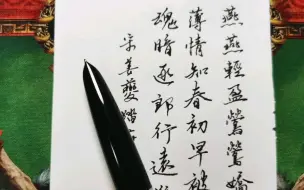 燕燕輕盈鶯鶯嬌
薄情知春初早被
魂暗逐郎行遠
宋姜夔踏